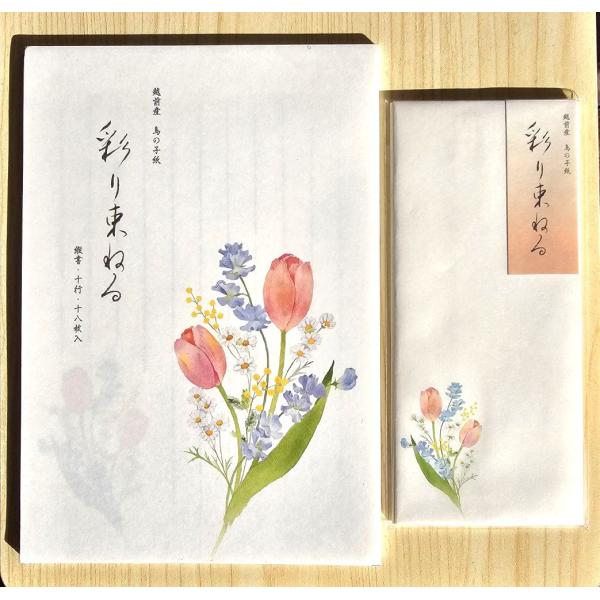 越前産　鳥の子紙
彩り束ねる
縦書・十行・十八枚入
越前産　鳥の子紙
彩り束ねる